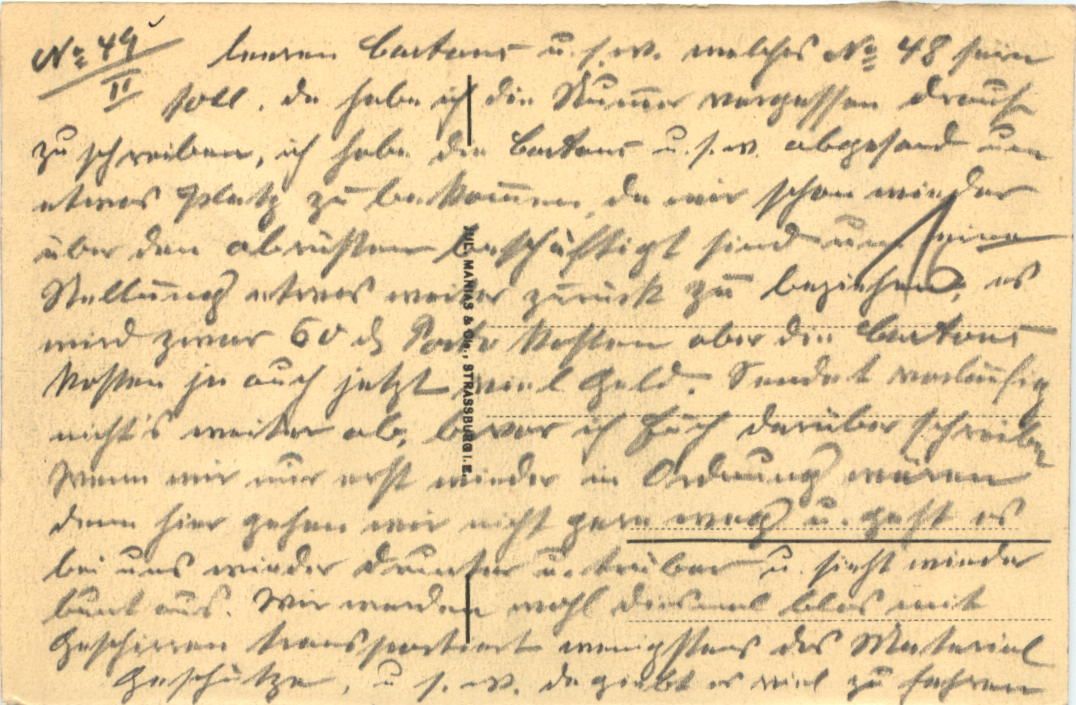 No 49 leeren Cartons u.s.w. welches No 48 sein
II soll, da habe ich die Nummer vergessen drauf
zu schreiben, ich habe die Cartons u.s.w. abgesand um
etwas Platz zu bekommen, da wir schon wieder
über den abrüsten beschäftigt sind um eine
Stellung etwas weiter zurück zu beziehen, es
wird zwar 60 ₰ Porto kosten aber die Cartons
kosten ja auch jetzt viel Geld. Sendet vorläufig
nicht's weiter ab, bevor ich Euch darüber schreibe
Wenn wir nur erst wieder in Ordnung wären
denn hier gehen wir nicht gern weg u. geht es
bei uns wieder drunter u. drüber u. sieht wieder
bunt aus. Wir werden wohl diesmal blos mit
Geschirren transportiert wenigstens das Material
Geschütze, u s.w. da giebt es viel zu fahren
JUL. MANIAS & Cie., STRASSBURG i. E.